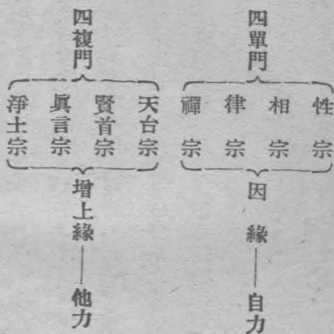 四單門
性宗
相宗
律宗
禪宗
因緣——自力
四複門
天台宗
賢首宗
眞言宗
淨土宗
增上緣——他力